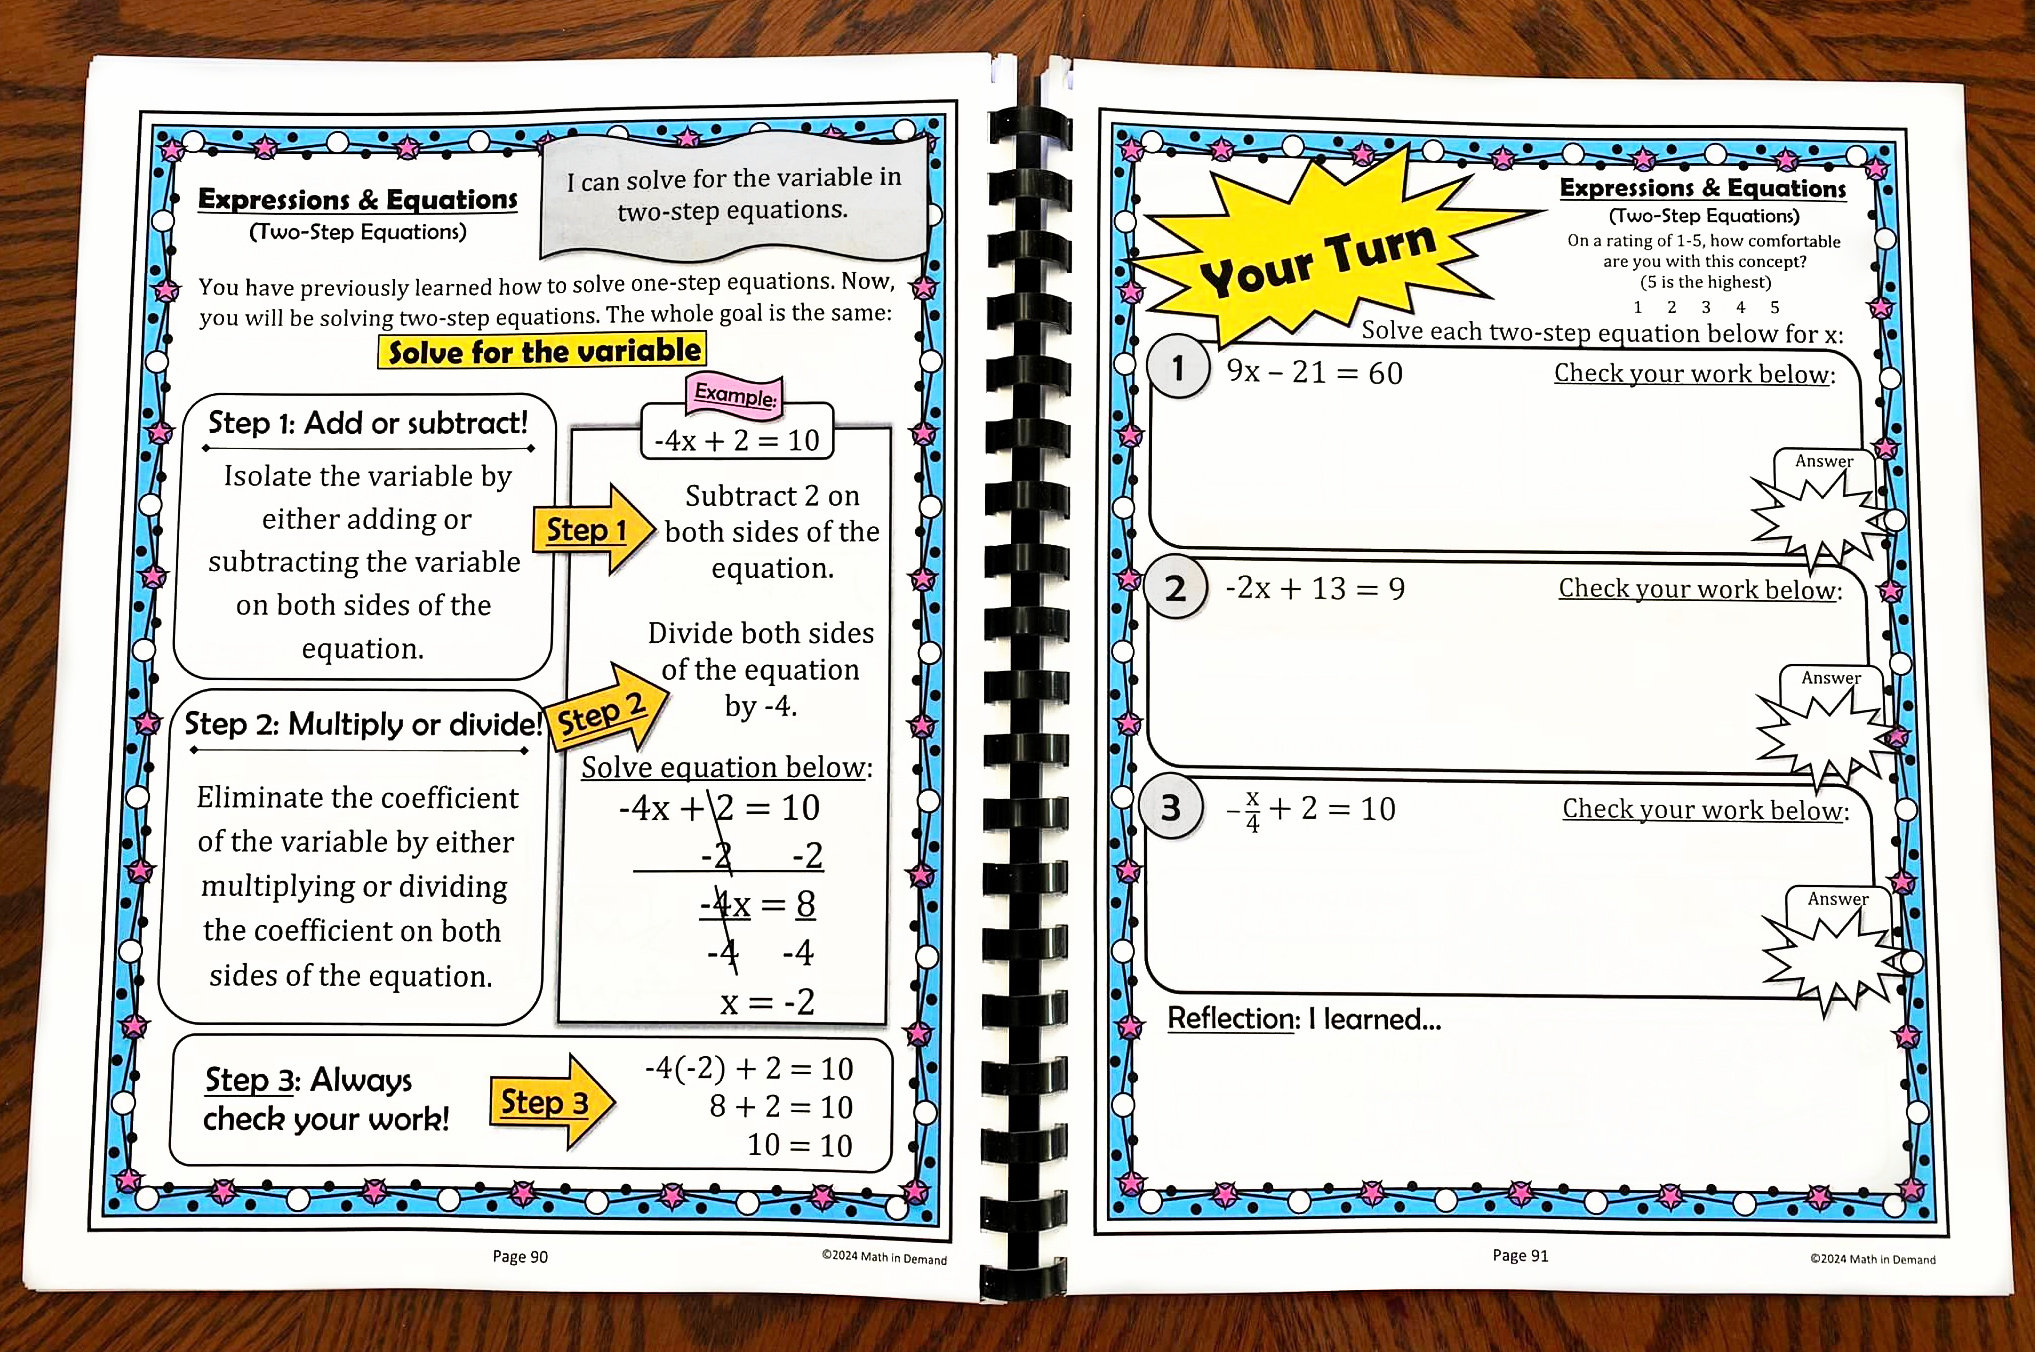 Expressions & Equations
(Two-Step Equations)
I can solve for the variable in
two-step equations.
You have previously learned how to solve one-step equations. Now,
you will be solving two-step equations. The whole goal is the same:
Solve for the variable
Step 1: Add or subtract!
Isolate the variable by
either adding or
subtracting the variable
on both sides of the
equation.
Step 2: Multiply or divide!
Eliminate the coefficient
of the variable by either
multiplying or dividing
the coefficient on both
sides of the equation.
Example:
-4x + 2 = 10
Step 1
Subtract 2 on
both sides of the
equation.
Step 2
Divide both sides
of the equation
by -4.
Solve equation below:
-4x + 2 = 10
-2 -2
-4x = 8
-4 -4
x = -2
Step 3: Always
check your work!
Step 3
-4(-2) + 2 = 10
8 + 2 = 10
10 = 10
Page 90
©2024 Math in Demand
Your Turn
Expressions & Equations
(Two-Step Equations)
On a rating of 1-5, how comfortable
are you with this concept?
(5 is the highest)
1 2 3 4 5
Solve each two-step equation below for x:
1
9x – 21 = 60
Check your work below:
Answer
2
-2x + 13 = 9
Check your work below:
Answer
3
-x/4 + 2 = 10
Check your work below:
Answer
Reflection: I learned...
Page 91
©2024 Math in Demand